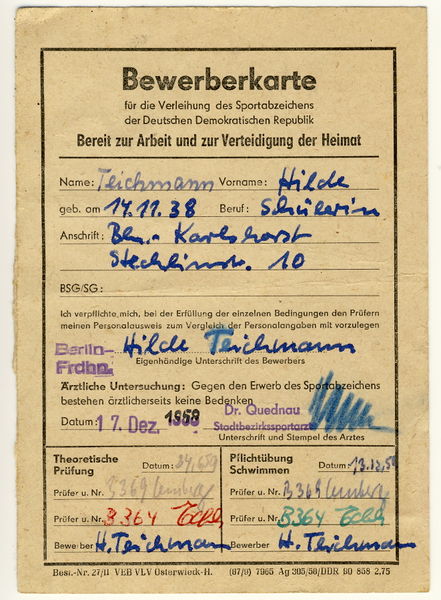 Bewerberkarte
für die Verleihung des Sportabzeichens
der Deutschen Demokratischen Republik
Bereit zur Arbeit und zur Verteidigung der Heimat
Name: Teichmann Vorname: Hilde
geb. am 17.11.38 Beruf: Schülerin
Anschrift: Bln.- Karlshorst
Stechlinstr. 10
BSG/SG:
Ich verpflichte mich, bei der Erfüllung der einzelnen Bedingungen den Prüfern
meinen Personalausweis zum Vergleich der Personalangaben mit vorzulegen
Berlin-
Frdhn.
Hilde Teichmann
Eigenhändige Unterschrift des Bewerbers
Ärztliche Untersuchung: Gegen den Erwerb des Sportabzeichens
bestehen ärztlicherseits keine Bedenken
Datum: 17. Dez. 1958 Dr. Quednau
Stadtbezirkssportarzt
Unterschrift und Stempel des Arztes
Theoretische Prüfung Datum:
Prüfer u. Nr. B369
Prüfer u. Nr. B364
Bewerber H. Teichmann
Pflichtübung Schwimmen Datum: 13.12.58
Prüfer u. Nr. B369
Prüfer u. Nr. B364
Bewerber H. Teichmann
Best.-Nr. 27/II VEB VLV Osterwieck-H. (87/9) 7965 Ag 305/58/DDR 60 858 2.75